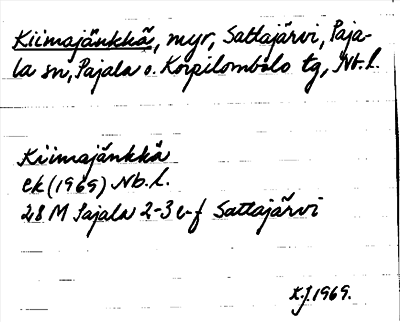 Kiimajänkkä, myr, Sattajärvi, Paja-
la sn, Pajala o. Korpilombolo tg, Nb.l.
Kiimajänkkä
ek (1969) Nb.l.
28 M Pajala 2-3 e-f Sattajärvi
K.J. 1969.